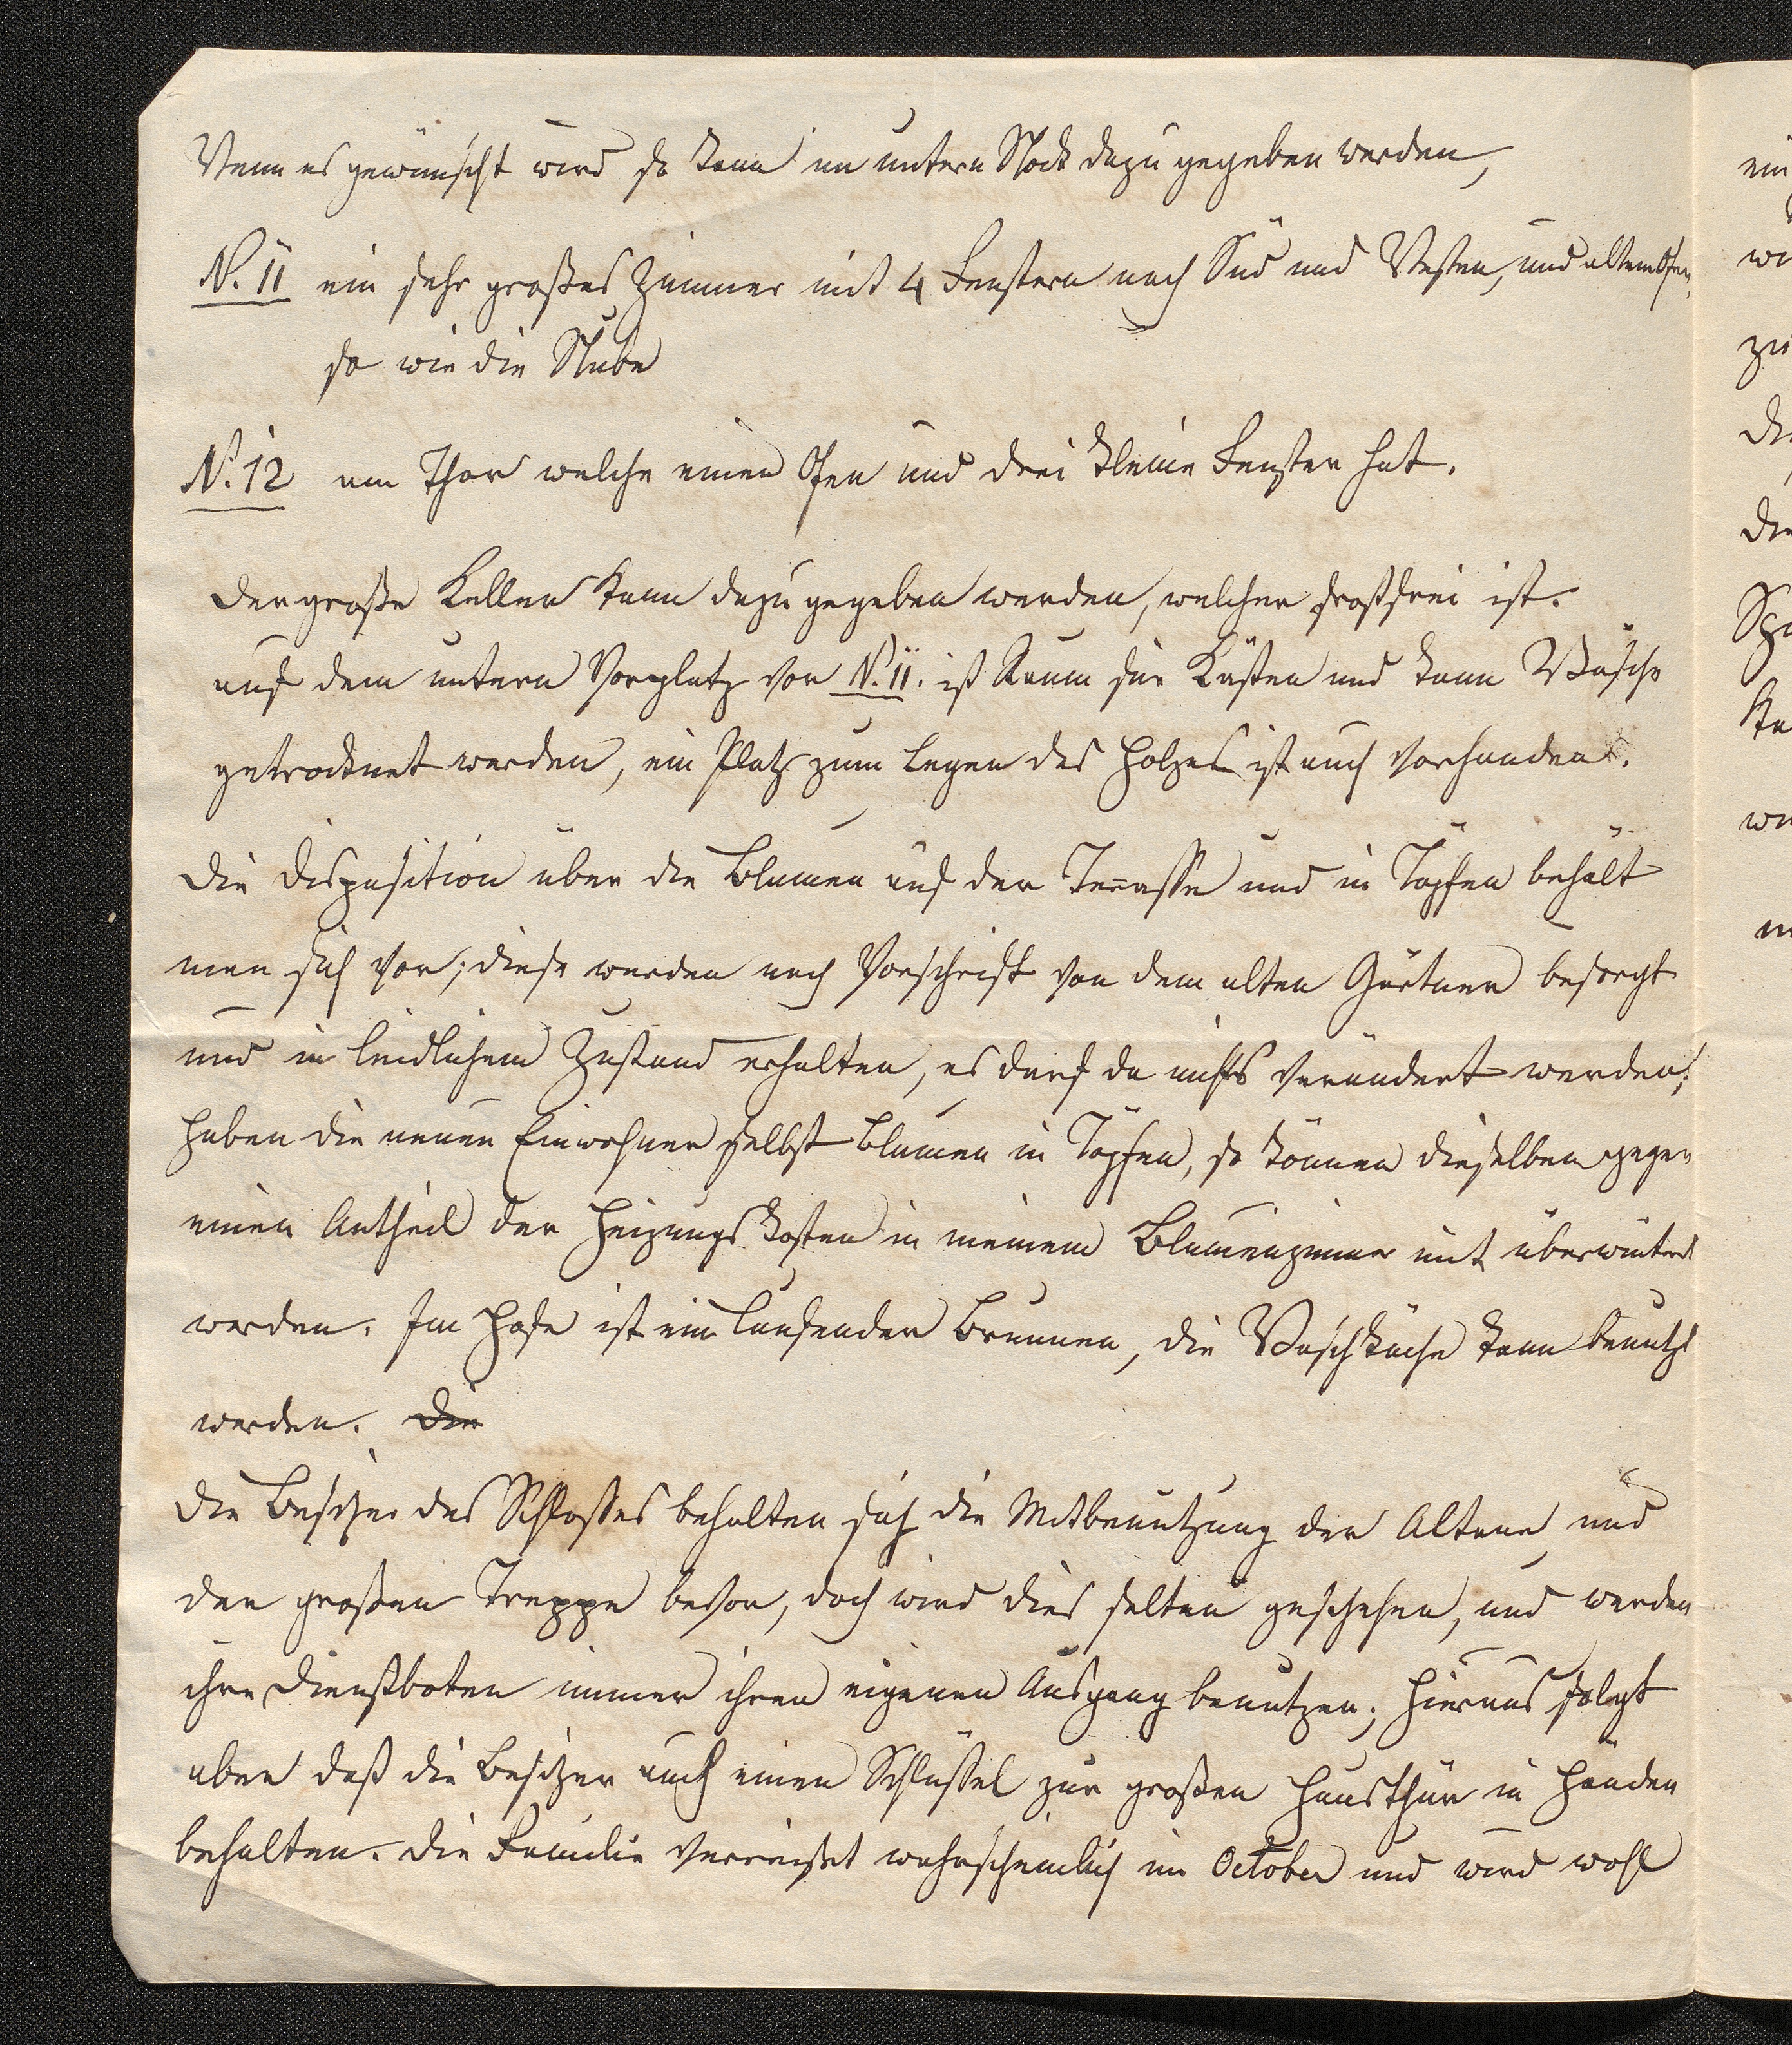 Wenn es gewünscht wird so kann im untern Stock dazu gegeben werden,
N. 11 ein sehr großes Zimmer mit 4 Fenstern nach Süd und Westen, und altem Ofen,
so wie die Stube
N. 12 am Thor welche einen Ofen und drei kleine Fenster hat.
Der große Keller kann dazu gegeben werden, welcher frostfrei ist.
auf dem untern Vorplatz vor N. 11. ist Raum für Kästen und kann Wäsche
getrocknet werden, ein Platz zum Legen des Holzes ist auch vorhanden.
Die Disposition über die Blumen auf der Terrasse und in Töpfen behält
man sich vor; diese werden nach Vorschrift von dem alten Gärtner besorgt
und in leidlichem Zustand erhalten, es darf da nichts verändert werden;
haben die neuen Einwohner selbst Blumen in Töpfen, so können dieselben gegen
einen Antheil der Heizungskosten in meinem Blumenzimmer mit überwintert
werden. Im Hofe ist ein laufender Brunnen, die Waschküche kann benutzt
werden. Die
Die Besitzer des Schloßes behalten sich die Mitbenutzung der Altane und
der großen Treppe bevor, doch wird dies selten geschehen, und werden
ihre Dienstboten immer ihren eigenen Ausgang benutzen; hieraus folgt
aber daß die Besitzer auch einen Schlüssel zur großen Hausthür in Händen
behalten. Die Familie verreiset wahrscheinlich im October und wird wohl